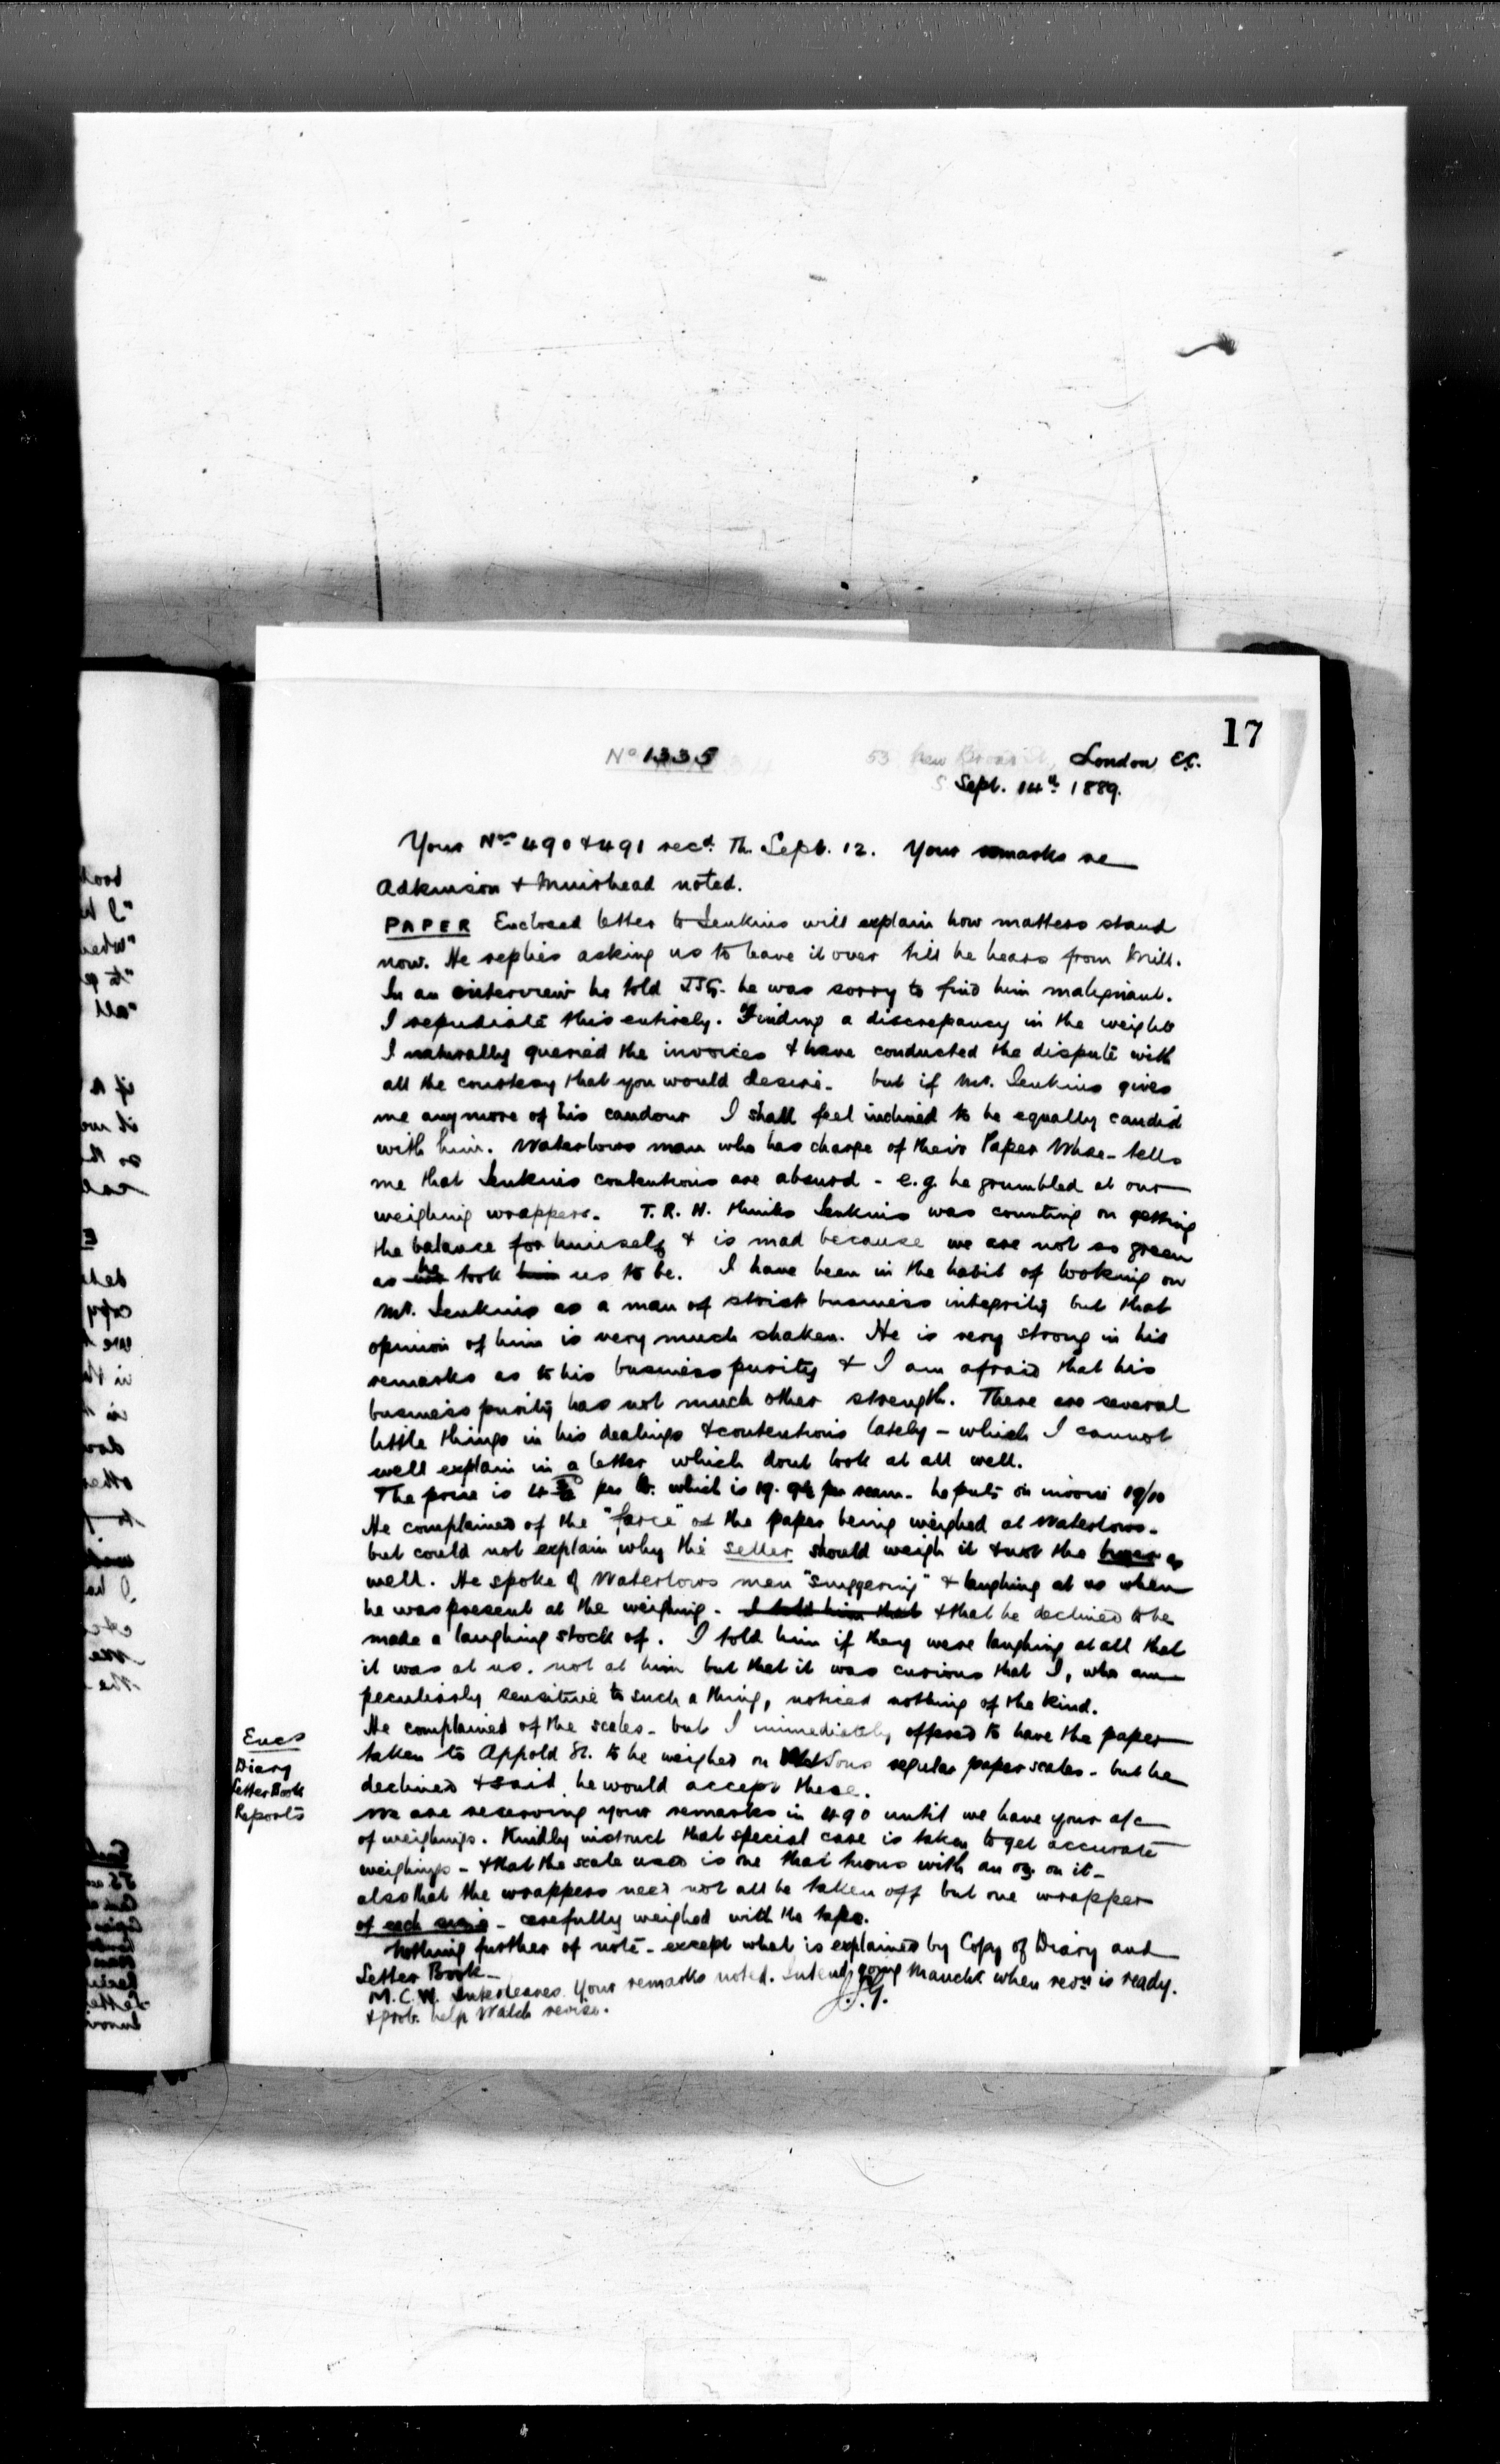 17
No 1335
53 New Broad St, London E.C.
Sept. 14th 1889.
Your Nos 490 & 491 recd. Th. Sept. 12. Your remarks re
Adkinson & Muirhead noted.
PAPER Enclosed letter to Jenkins will explain how matters stand
now. He replies asking us to leave it over till he hears from Mill.
In an interview he told JJG. he was sorry to find him malignant.
I repudiate this entirely. Finding a discrepancy in the weights
I naturally queried the invoices & have conducted the dispute with
all the courtesy that you would desire. but if Mr. Jenkins gives
me anymore of his candour I shall feel inclined to be equally candid
with him. Waterlows man who has charge of their Paper Whse. tells
me that Jenkins contentions are absurd - e.g. he grumbled at our
weighing wrappers. T.R.H. thinks Jenkins was counting on getting
the balance for himself & is mad because we are not so green
as he took him us to be. I have been in the habit of looking on
Mr. Jenkins as a man of strict business integrity but that
opinion of him is very much shaken. He is very strong in his
remarks as to his business purity & I am afraid that his
business purity has not much other strength. There are several
little things in his dealings & contentions lately - which I cannot
well explain in a letter which dont look at all well.
The price is per lb. which is 19. per ream. he puts on invoice 19/10
He complained of the "farce" of the paper being weighed at Waterlows.
but could not explain why the seller should weigh it & not the buyer as
well. He spoke of Waterlows men "sniggering" & laughing at us when
he was present at the weighing. I told him that & that he declined to be
made a laughing stock of. I told him if they were laughing at all that
it was at us. not at him but that it was curious that I, who am
peculiarly sensitive to such a thing, noticed nothing of the kind.
He complained of the scales - but I immediately offered to have the paper
taken to Appold St. to be weighed on Sons regular paper scales - but he
declined & said he would accept these.
We are reserving your remarks in 490 until we have your a/c
of weighings. Kindly instruct that special care is taken to get accurate
weighings - & that the scale used is one that turns with an oz. on it -
also that the wrappers need not all be taken off but one wrapper
of each - carefully weighed with the tape.
Nothing further of note - except what is explained by Copy of Diary and
Letter Book -
M.C.W. Interleaves. Your remarks noted. Intend going Manchr. when reon is ready.
& prob. help Walch revise.
J.J.G.
Encs
Diary
Letter Book
Reports